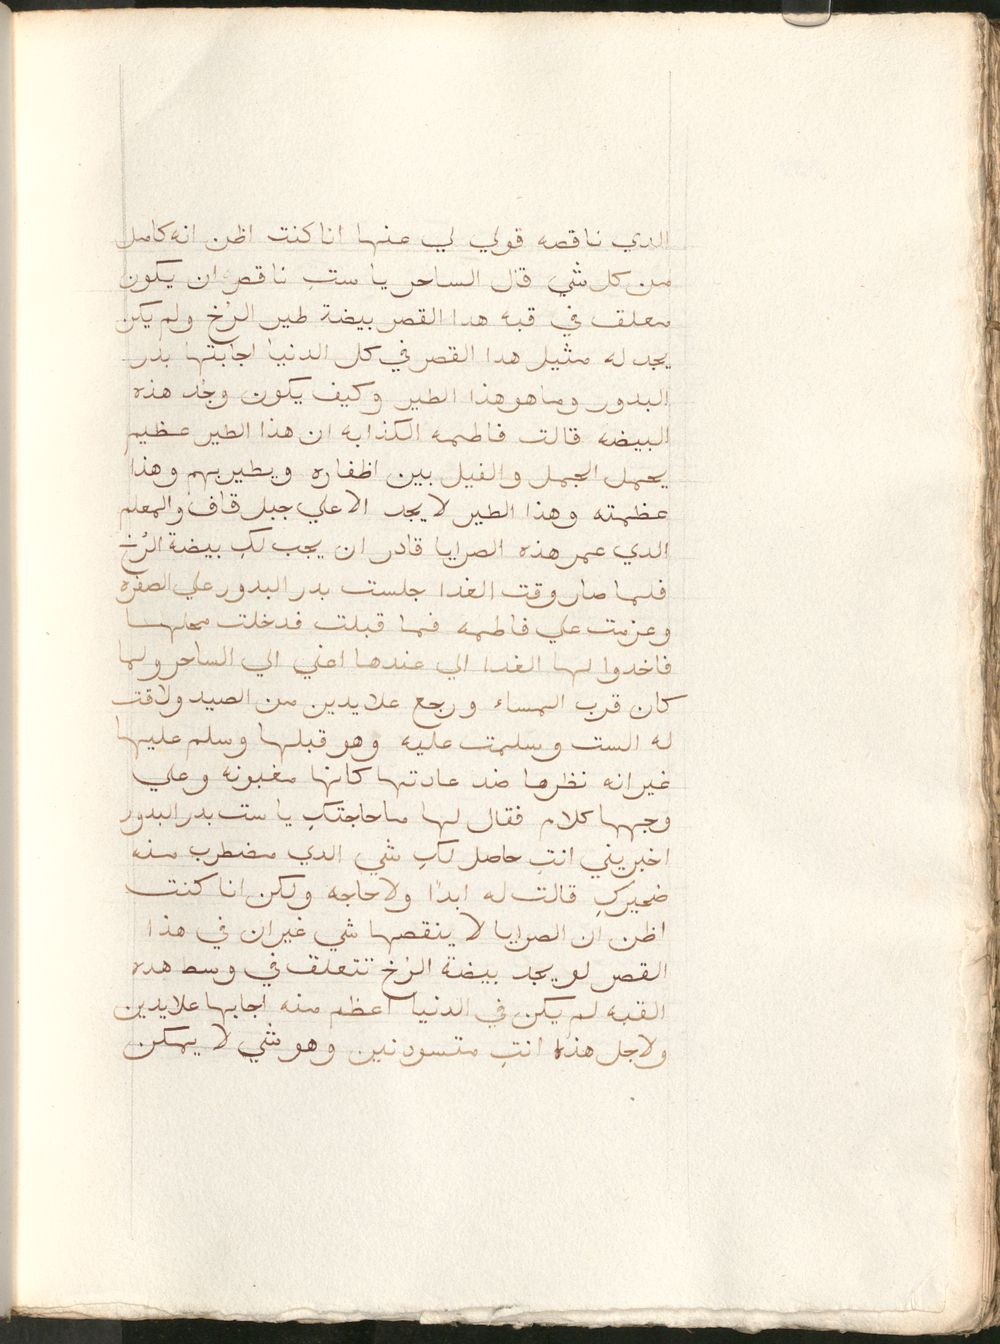 الدي ناقصه قولي لي عنها انا كنت اظن انه كامل
من كل شي قال الساحر يا ستِ ناقص ان يكون
معلقف في قبه هدا القصر بيضة طير الرُخ ولم يكن
يجد له مثيل هدا القصر في كل الدنيا اجابتها بدر
البدور وما هو هذا الطير وكيف يكون وجُد هذه
البيضه قالت فاطمه الكذابه ان هذا الطير عظيم
يحمل الجمل والفيل بين اظفاره ويطير بهم وهذا
عظمته وهذا الطير لا يجد الا علي جبل قاف والمعلم
الدي عمر هذه الصرايا قادر ان يجب لكِ بيضة الرُخ
فلما صار وقت الغدا جلست بدر البدور علي الصفره
وعزمت علي فاطمه فما قبلت فدخلت محلها
فاخدوا لها الغدا الي عندها اعني الي الساحر ولما
كان قرب المساء ورجع علايدين من الصيد ولاقت
له الست وسلمت عليه وهو قبلها وسلم عليها
غير انه نظرها ضد عادتها كانها مغبونه وعلي
وجهها كلام فقال لها ما حاجتكِ يا ست بدر البدور
اخبريني انتِ حاصل لكِ شي الدي مضطرب منه
ضميركِ قالت له ابدًا ولا حاجه ولكن انا كنت
اظن ان الصرايا لا ينقصها شي غير ان في هذا
القصر لو يجد بيضة الرُخ تتعلقف في وسط هده
القبه لم يكن في الدنيا اعظم منه اجابها علايدين
ولاجل هذه انتِ متسودنين وهو شي لا يمكن